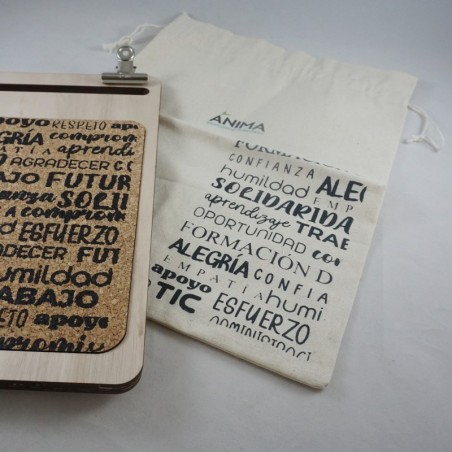 apoyo RESPETO apo
ALEGRÍA comprom
aprendi
AGRADECER CO
AJO FUTUR
anza SOLI
comprom
ESFUERZO
DECER FUT
humildad
ABAJO
ETO apoyo
ompromi
ÁNIMA
FORMACIÓN
CONFIANZA
humildad ALEG
SOLIDARIDA EMP
aprendizaje TRAB
OPORTUNIDAD con
FORMACIÓN D
ALEGRÍA CONFIA
EMPATÍA humi
apoyo
TIC ESFUERZO